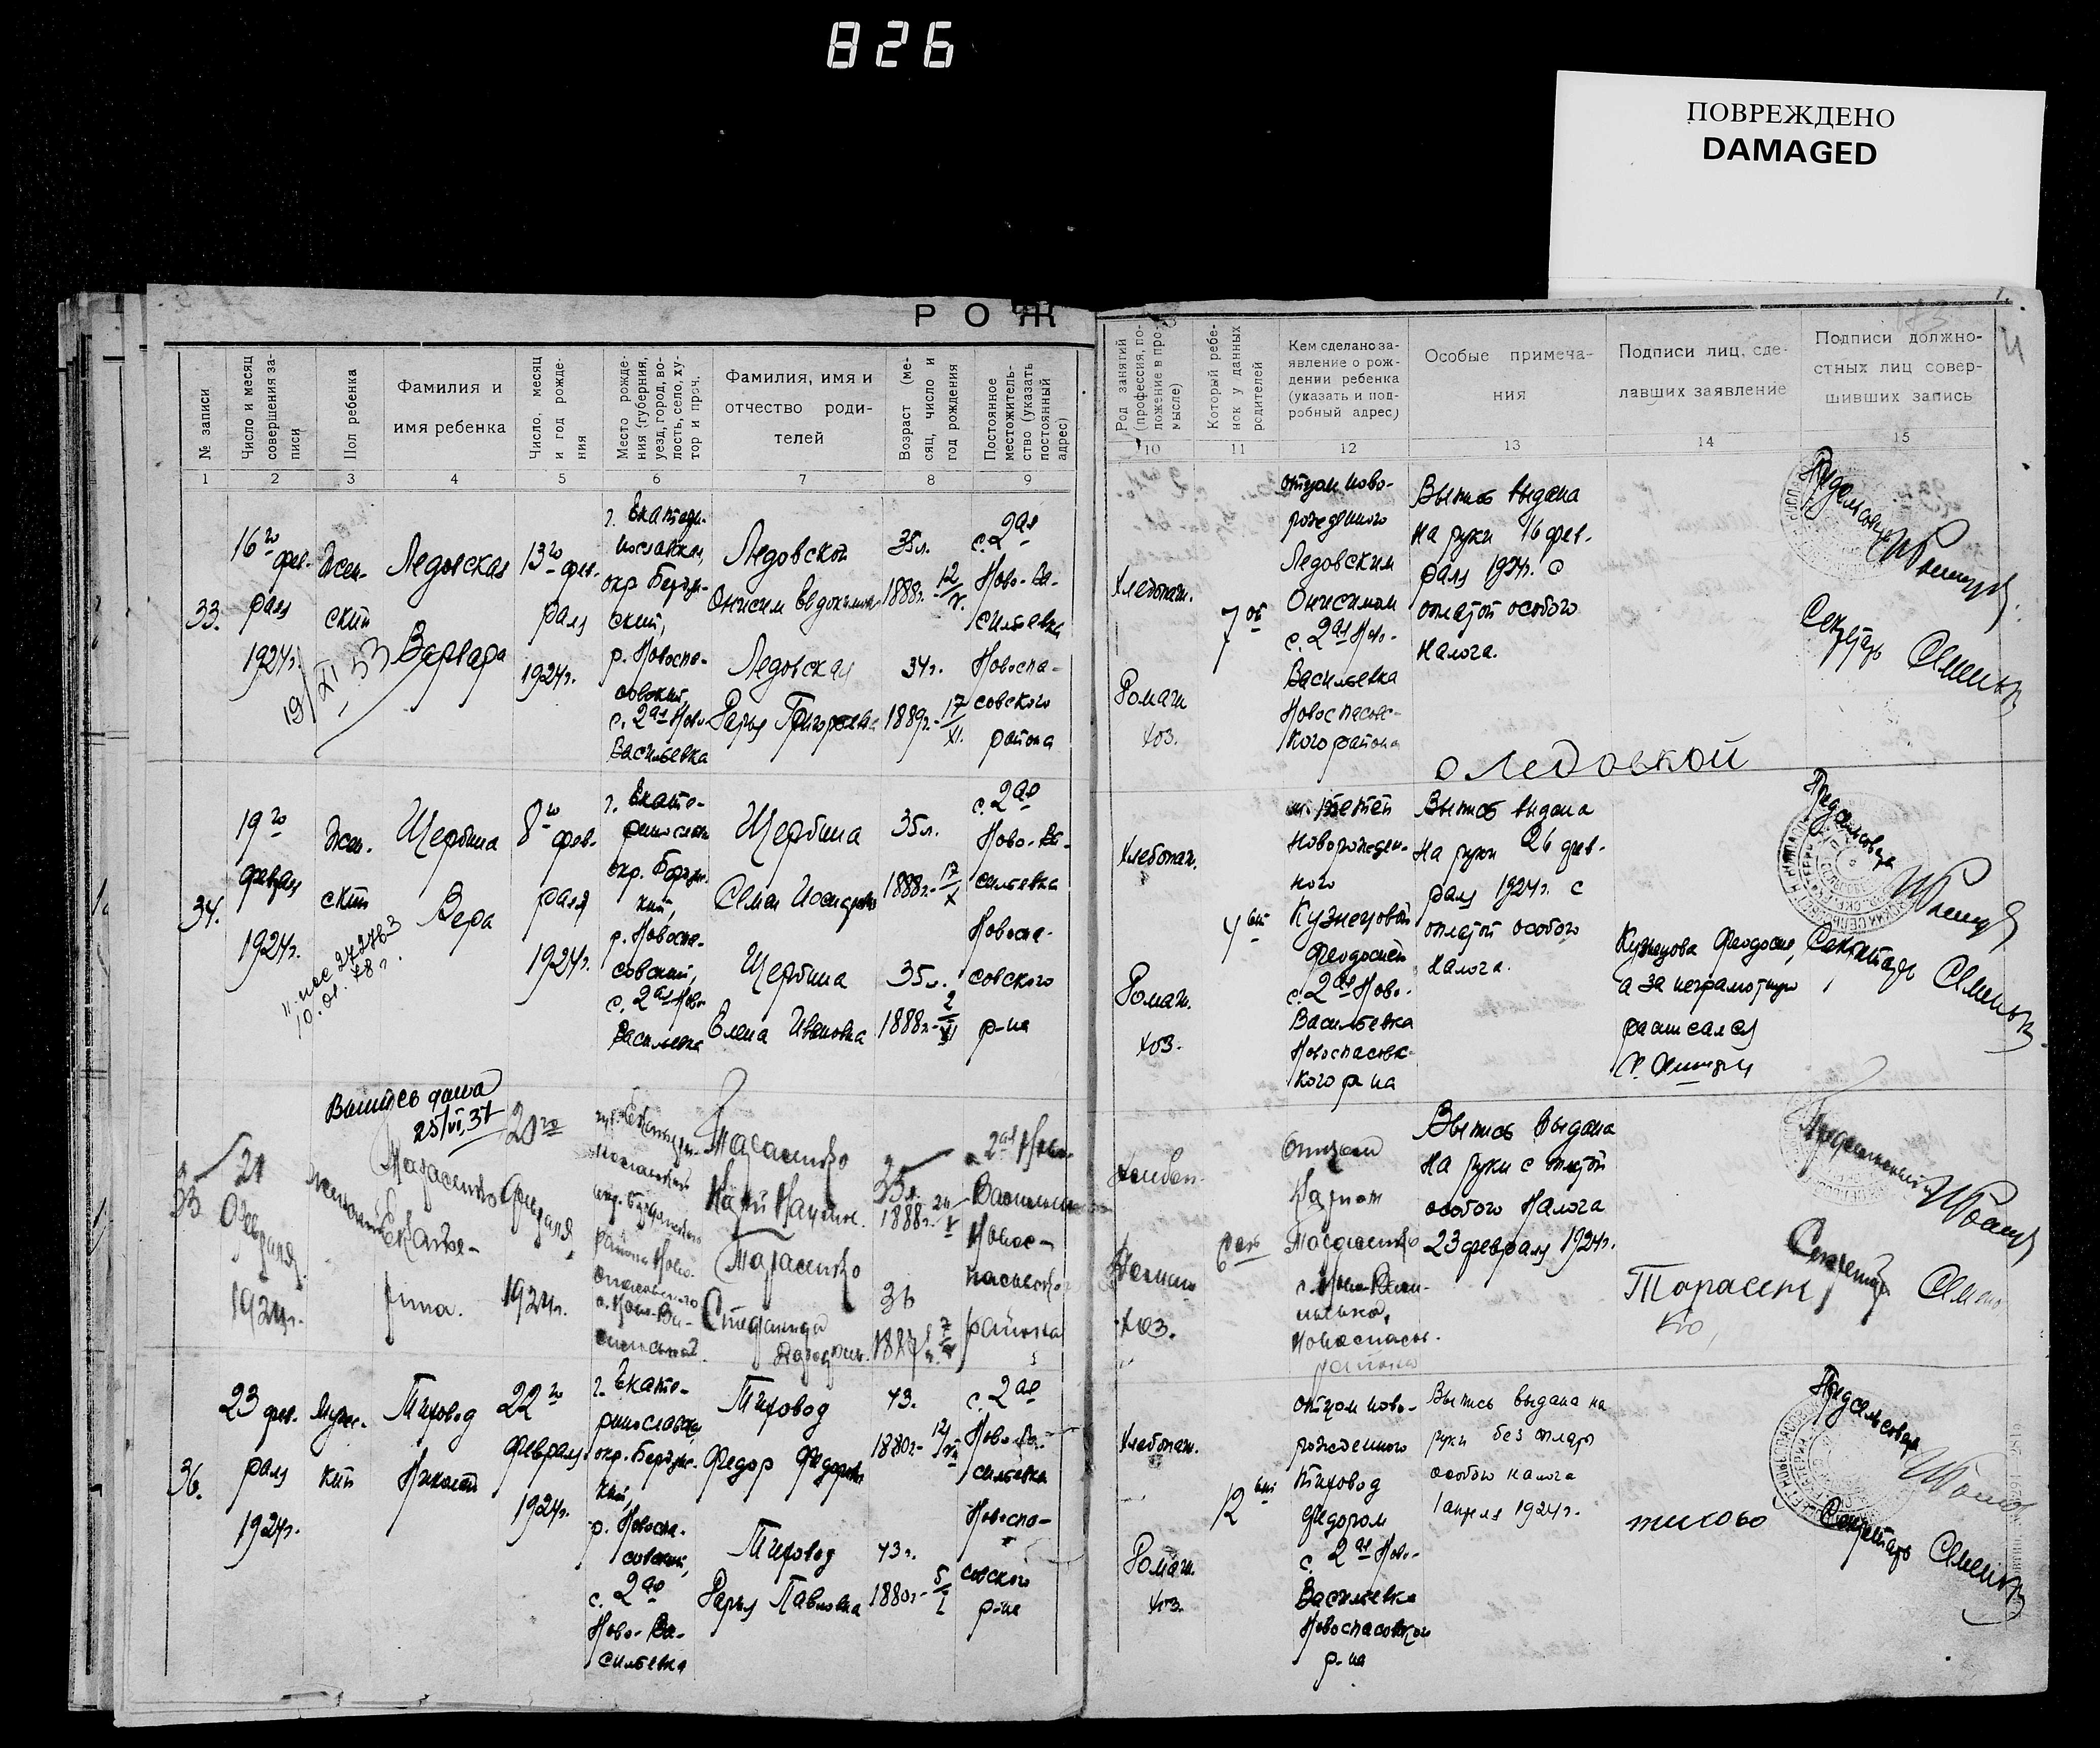 826
ПОВРЕЖДЕНО
DAMAGED
Р О Ж
№ записи
Число и месяц
совершения за-
писи
Пол ребенка
Фамилия и
имя ребенка
Число, месяц
и год рожде-
ния
Место рожде-
ния (губерния,
уезд, город, во-
лость, село, ху-
тор и проч.
Фамилия, имя и
отчество роди-
телей
Возраст (ме-
сяц, число и
год рождения
Постоянное
местожитель-
ство (указать
постоянный
адрес)
Род занятий
(профессия, по-
ложение в про-
мысле)
Который ребе-
нок у данных
родителей
Кем сделано за-
явление о рож-
дении ребенка
(указать и под-
робный адрес)
Особые примеча-
ния
Подписи лиц, сде-
лавших заявление
Подписи должно-
стных лиц совер-
шивших запись
1 2 3 4 5 6 7 8 9 10 11 12 13 14 15
33.
16го фев-
раля
1924г.
Жен-
ский
19/XI 53
Ледовская
Варвара
13го фев-
раля
1924г.
г. Екатери-
нославская,
окр. Бердян-
ский,
р. Новоспа-
совский,
с. 2ая Ново-
Васильевка
Ледовской
Онисим Евдокимов
Ледовская
Дарья Григорьевна
35л.
1888г.
34г.
1889г. 17/XI.
с. 2ая
Ново-Ва-
сильевка
Новоспа-
совского
района
Хлебопаш.
Домаш.
хоз.
7ой
отцом ново-
рожденного
Ледовским
Онисимом
с. 2ая Ново-
Васильевка
Новоспасовс-
кого района
Выпись выдана
на руки 16 фев-
раля 1924г. с
оплатой особого
налога.
о ледовкой
Секретарь
34.
19го
февраля
1924г.
Жен-
ский
10.01.78г.
Щербина
Вера
8го фев-
раля
1924г.
г. Екате-
ринослав
окр. Бердян-
кий,
р. Новоспа-
совский,
с. 2ая Ново-
Васильевка
Щербина
Щербина
Елена Ивановна
35л.
1888г. 17/X
35л.
1888г. 2/XI
с. 2ая
Ново-Ва-
сильевка
Новоспа-
совского
р-на
Хлебопаш.
Домаш.
хоз.
новорожден-
ного
Кузнецовой
Феодосией
с. 2ая Ново-
Васильевка
Новоспасовс-
кого р-на
Выпись выдана
на руки 26 фев-
раля 1924г. с
оплатой особого
налога.
Кузнецова Феодосия,
а за неграмотную
расписался
Секретарь
Выпись дана
25/VI,37
21
февраля
1924г.
Тарасенко
Екате-
рина.
20го
февраля
1924г.
Тарасенко
Тарасенко
Степанида
35л.
1888г.
36
2ая Ново-
района
хоз.
отцом
Тарасенко
Выпись выдана
на руки с оплатой
особого налога
23 февраля 1924г.
Тарасен
ко,
Секретарь
36.
23 фев-
раля
1924г.
Муж-
кий
Тиховод
Николай
22го
февраля
1924г.
г. Екате-
ринославская,
окр. Бердянс-
кий,
р. Новоспа-
совский,
с. 2ая
Ново-Ва-
сильевка
Тиховод
Федор Федоров
Тиховод
Дарья Павловна
43.
1880г.
43г.
1880г. 5/I
с. 2ая
Ново-Ва-
сильевка
Новоспа-
совского
р-на
Хлебопаш.
Домаш.
хоз.
12ый
отцом ново-
рожденного
Тиховод
Федором
с. 2ая Ново-
Васильевка
Новоспасовского
р-на
Выпись выдана на
руки без оплаты
особого налога
1 апреля 1924г.
тихово
Секретарь